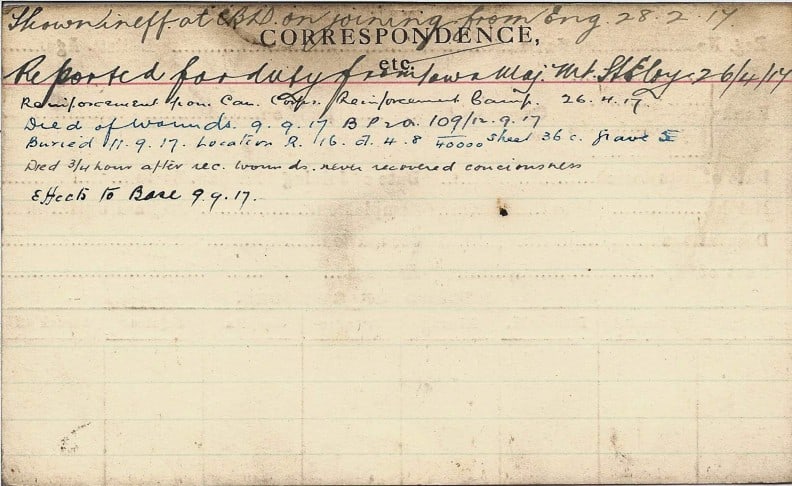 Shown ineff at CBD. on joining from Eng. 28.2.17.
CORRESPONDENCE,
etc.
Reported for duty from Town Maj. Mt. St Eloy. 26/4/17
Reinforcement from. Can. Corps. Reinforcement Camp. 26.4.17.
Died of Wounds. 9.9.17. B P 2 a. 109/12.9.17
Buried 11.9.17. Location R. 16. d. 4.8 1/40000 Sheet 36 c. Grave 5
Died 3/4 hour after rec. wounds. never recovered conciousness
Effects to Base 9.9.17.